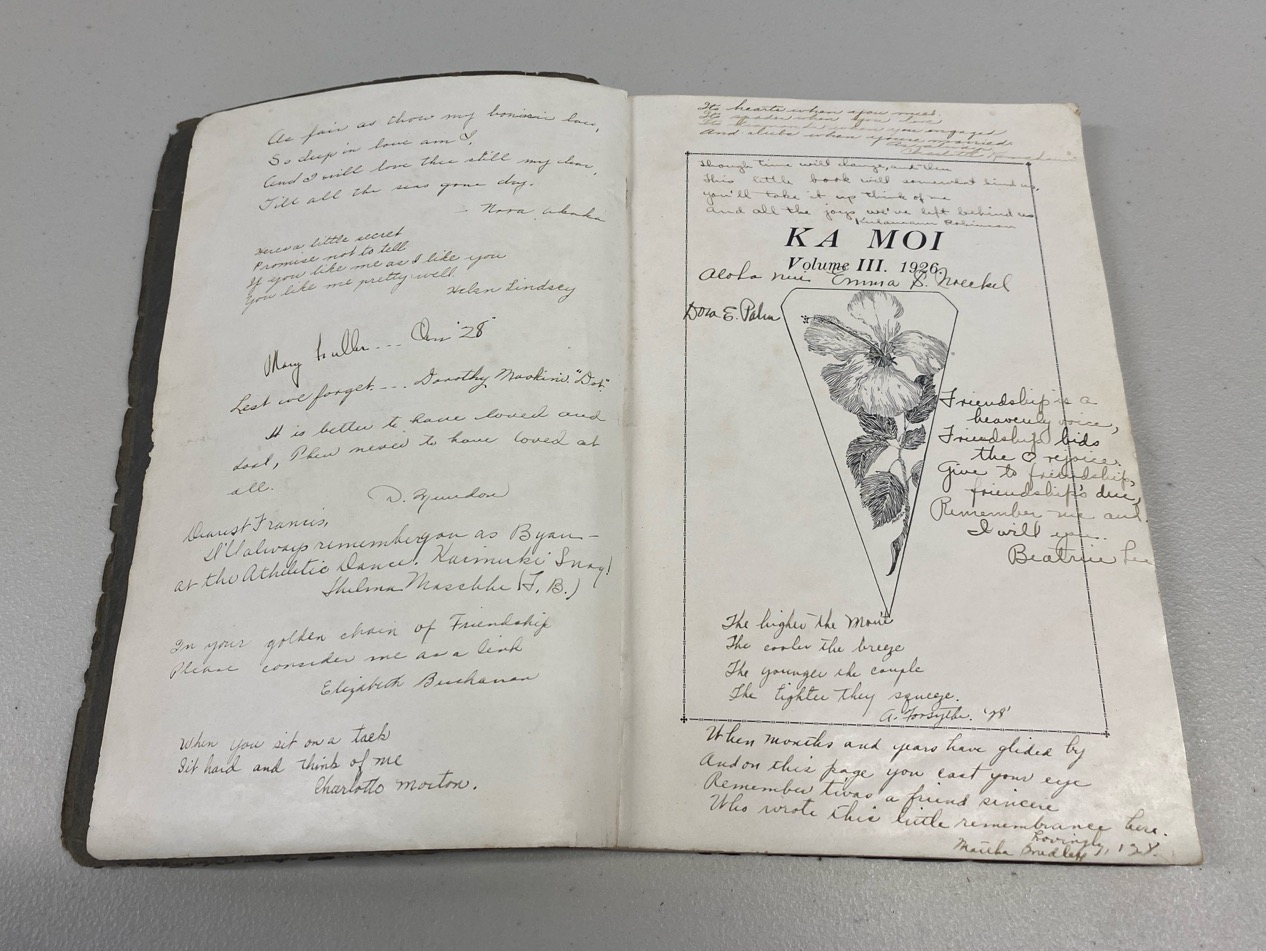 As fair as thow my bonnin lass,
So deep in love am I,
And I will love thee still my dear,
Till all the seas gone dry.
- Nora
Heres a little secret
Promise not to tell
If you like me as I like you
You like me pretty well
Helen Lindsey
Mary '28
Lest we forget --- Dorothy "Dot"
It is better to have loved and
lost, Then never to have loved at
all.
D.
Dearest Francis,
I'll always remember you as Byan -
at the Athletic Dance. Kaimuki Snag!
Thelma Maschke (T.B.)
In your golden chain of Friendship
Please consider me as a link
Elizabeth Buchanan
When you sit on a tack
Sit hard and think of me
Charlotte Morton.
Its hearts when you meet
Its spades when you
Its diamonds when you engaged
And clubs when your married.
Though time will change, and then
This little book will somewhat bind us,
you'll take it up think of me
And all the joys we've left behind us
Robinson
KA MOI
Volume III. 1926.
Aloha nui Emma S.
Dora E. Palm
Friendship is a
heavenly voice,
Friendship bids
the ♡ rejoice.
Give to friendship,
friendship's due,
Remember me and
I will you.
Beatrice Lee
The higher the Mont
The cooler the breeze
The younger the couple
The tighter they squeeze.
A. Forsythe. '28'
When months and years have glided by
And on this page you cast your eye
Remember twas a friend sincere
Who wrote this little remembrance here.
Lovingly,
Martha Bradley, '28.